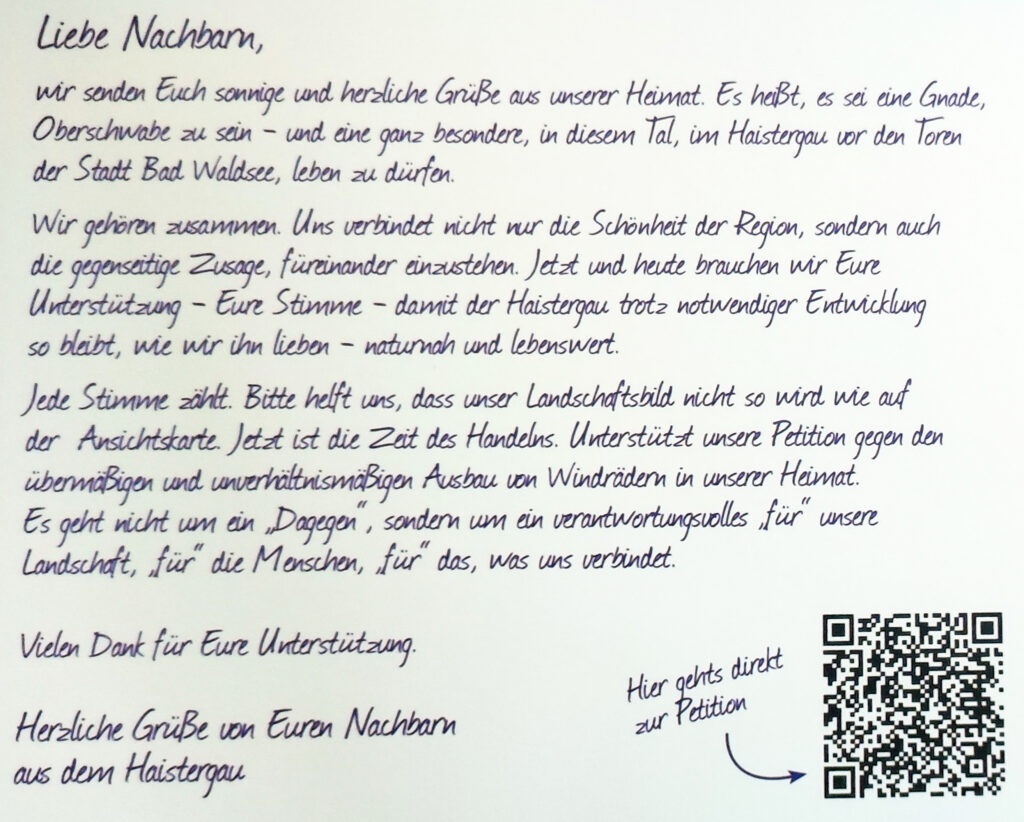 Liebe Nachbarn,
wir senden Euch sonnige und herzliche Grüße aus unserer Heimat. Es heißt, es sei eine Gnade,
Oberschwabe zu sein – und eine ganz besondere, in diesem Tal, im Haistergau vor den Toren
der Stadt Bad Waldsee, leben zu dürfen.
Wir gehören zusammen. Uns verbindet nicht nur die Schönheit der Region, sondern auch
die gegenseitige Zusage, füreinander einzustehen. Jetzt und heute brauchen wir Eure
Unterstützung – Eure Stimme – damit der Haistergau trotz notwendiger Entwicklung
so bleibt, wie wir ihn lieben – naturnah und lebenswert.
Jede Stimme zählt. Bitte helft uns, dass unser Landschaftsbild nicht so wird wie auf
der Ansichtskarte. Jetzt ist die Zeit des Handelns. Unterstützt unsere Petition gegen den
übermäßigen und unverhältnismäßigen Ausbau von Windrädern in unserer Heimat.
Es geht nicht um ein „Dagegen“, sondern um ein verantwortungsvolles „für“ unsere
Landschaft, „für“ die Menschen, „für“ das, was uns verbindet.
Vielen Dank für Eure Unterstützung.
Hier gehts direkt
zur Petition
Herzliche Grüße von Euren Nachbarn
aus dem Haistergau